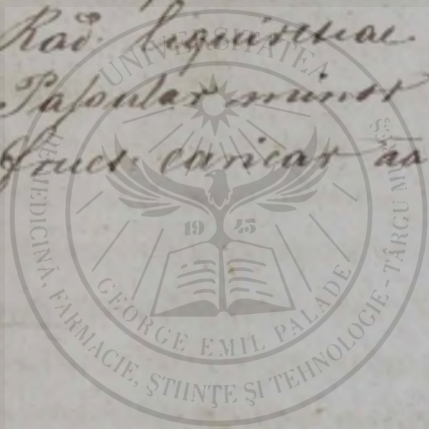 Rad. Liquiritiae
Passular minor
fruct. caricar aa
UNIVERSITATEA
DE MEDICINĂ, FARMACIE, ȘTIINȚE ȘI TEHNOLOGIE - TÂRGU MUREȘ
19 45
GEORGE EMIL PALADE